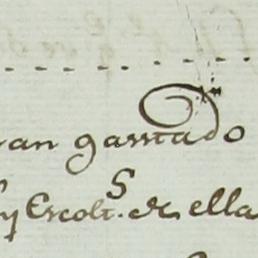 van gastado
y Escolt.s de ella